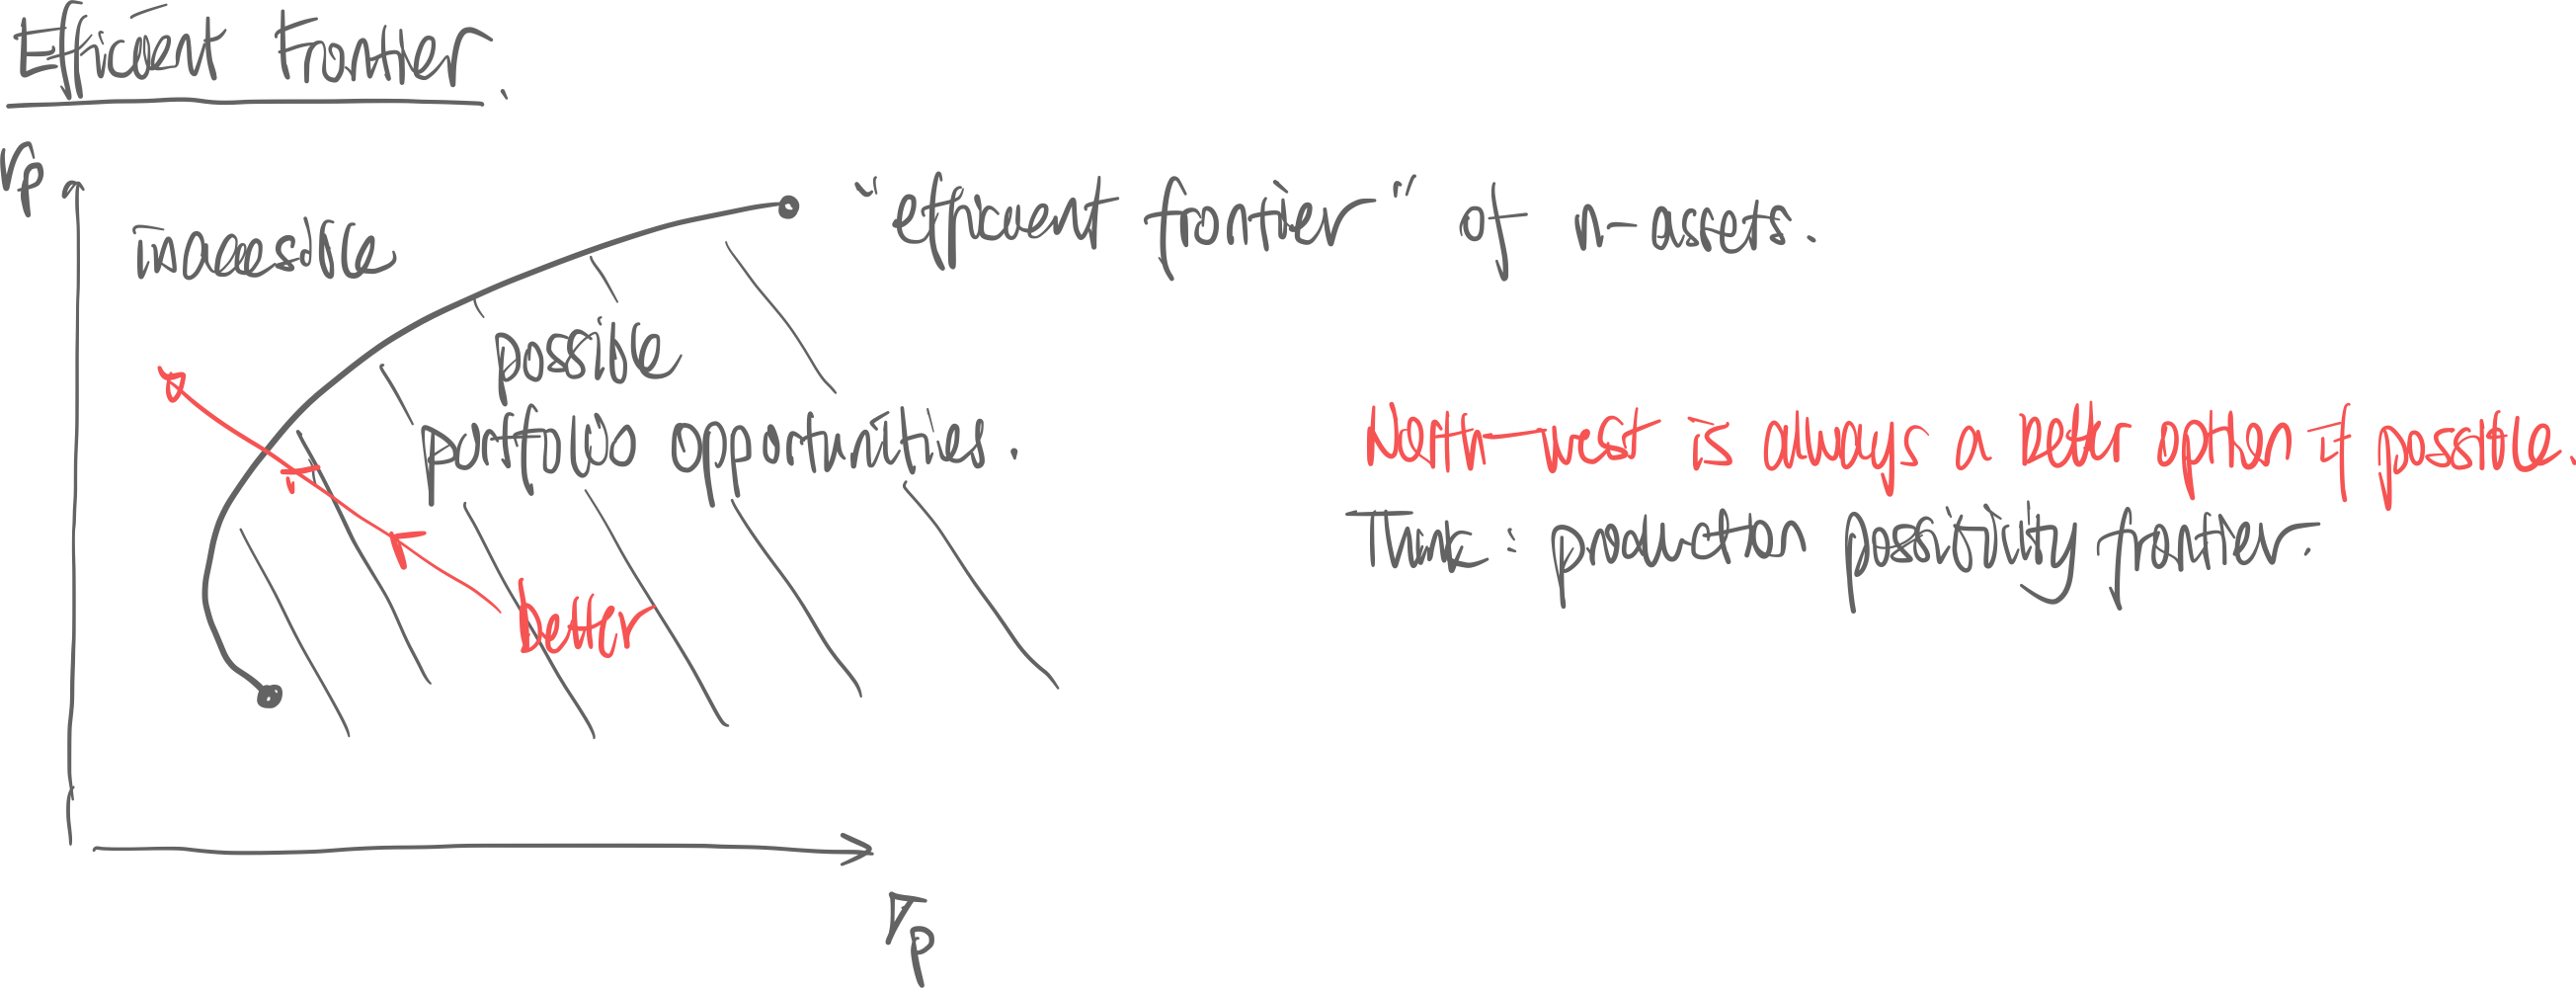 Efficient Frontier.
rp
inaccessible
"efficient frontier" of n-assets.
possible
portfolio opportunities.
better
North-west is always a better option if possible.
Think: production possibility frontier.
σp